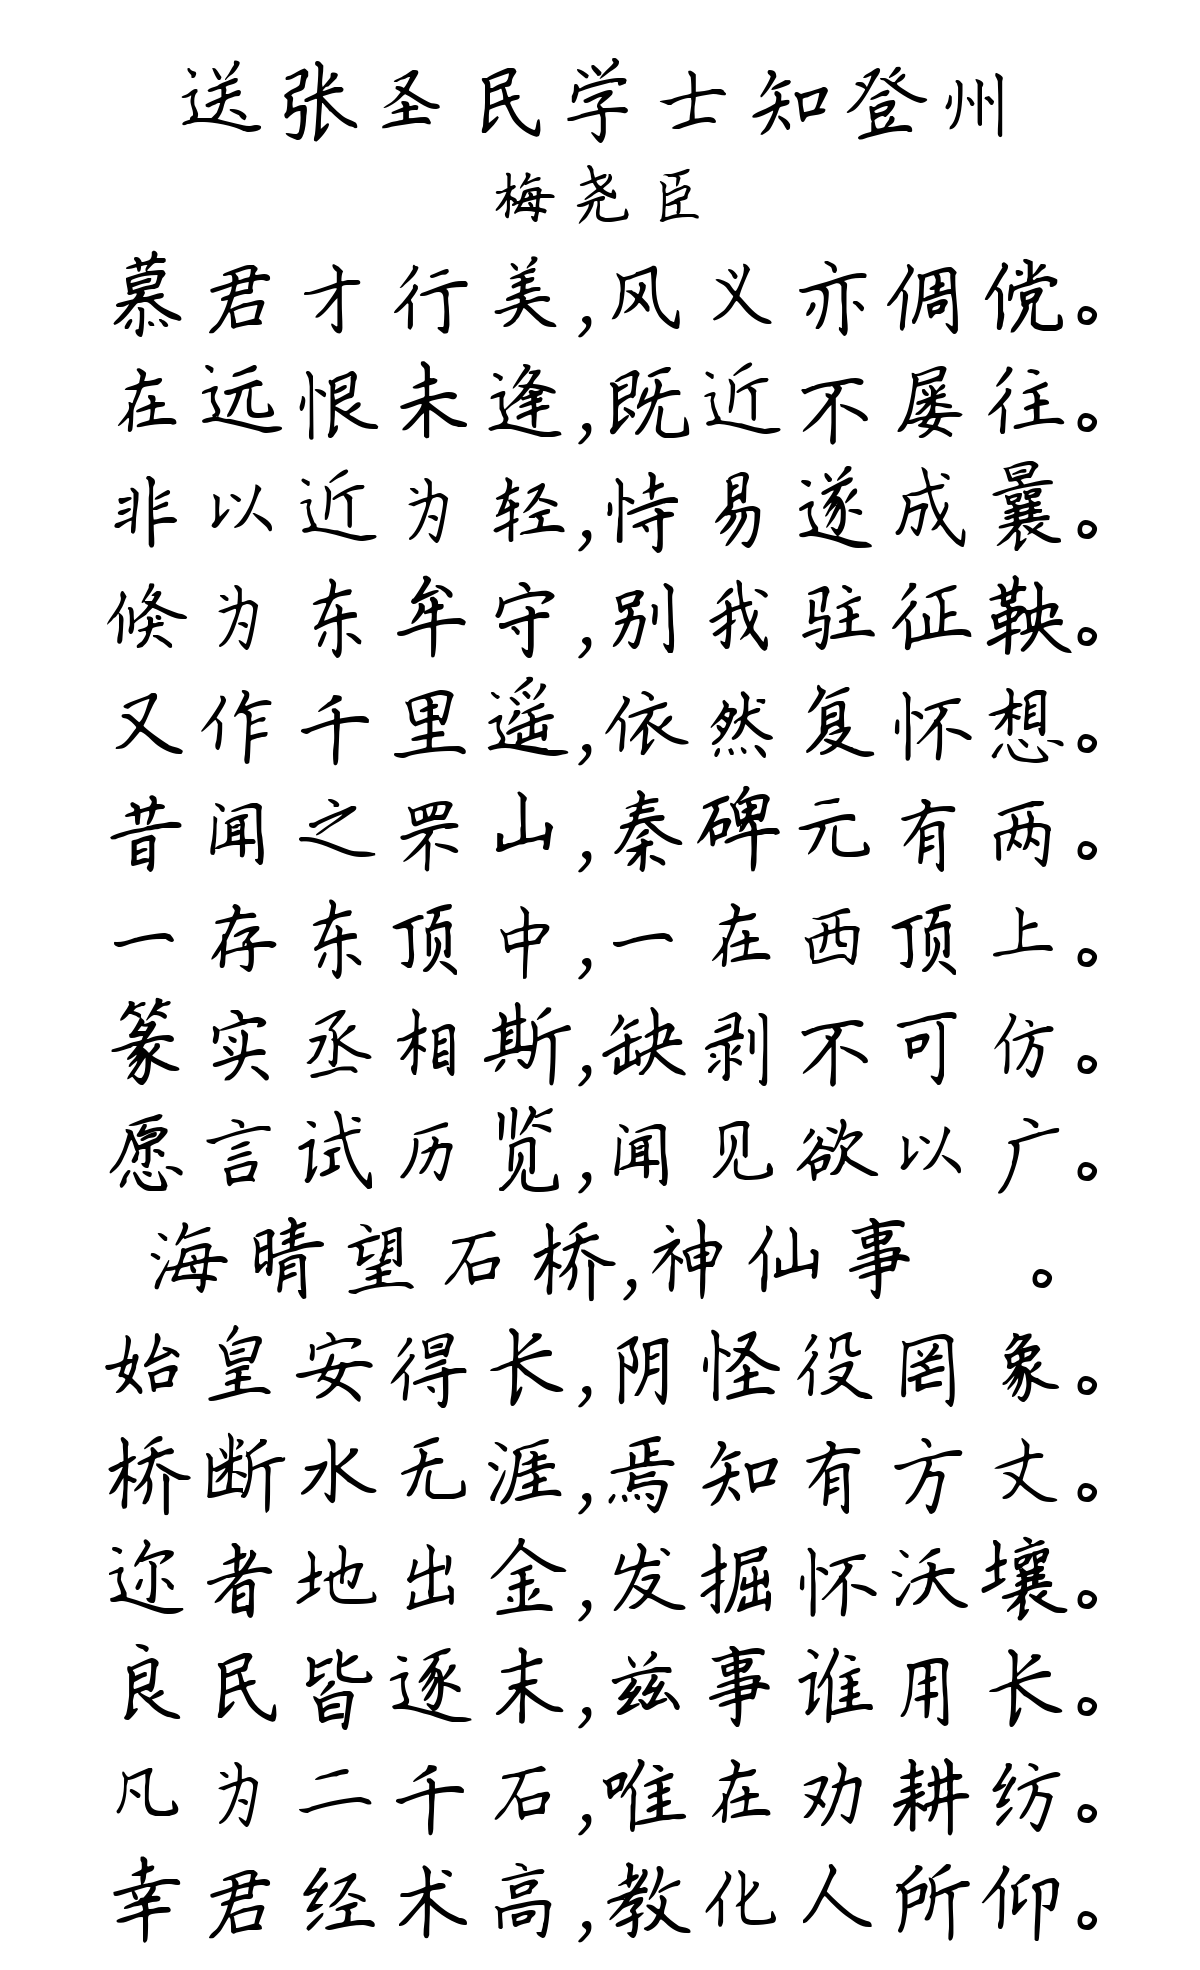 送张圣民学士知登州
梅尧臣
慕君才行美,风义亦倜傥。
在远恨未逢,既近不屡往。
非以近为轻,恃易遂成曩。
倏为东牟守,别我驻征鞅。
又作千里遥,依然复怀想。
昔闻之罘山,秦碑元有两。
一存东顶中,一在西顶上。
篆实丞相斯,缺剥不可仿。
愿言试历览,闻见欲以广。
海晴望石桥,神仙事 。
始皇安得长,阴怪役罔象。
桥断水无涯,焉知有方丈。
迩者地出金,发掘怀沃壤。
良民皆逐末,兹事谁用长。
凡为二千石,唯在劝耕纺。
幸君经术高,教化人所仰。